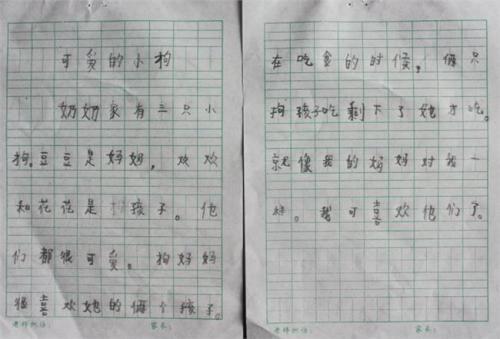 可爱的小狗
奶奶家有三只小
狗。豆豆是妈妈，欢欢
和花花是孩子。他
们都很可爱。狗妈妈
很喜欢她的俩个孩子。
老师批语：
家长：
在吃食的时候，俩只
狗孩子吃剩下了她才吃。
就像我的妈妈对我一
样。我可喜欢他们了。
老师批语：
家长：